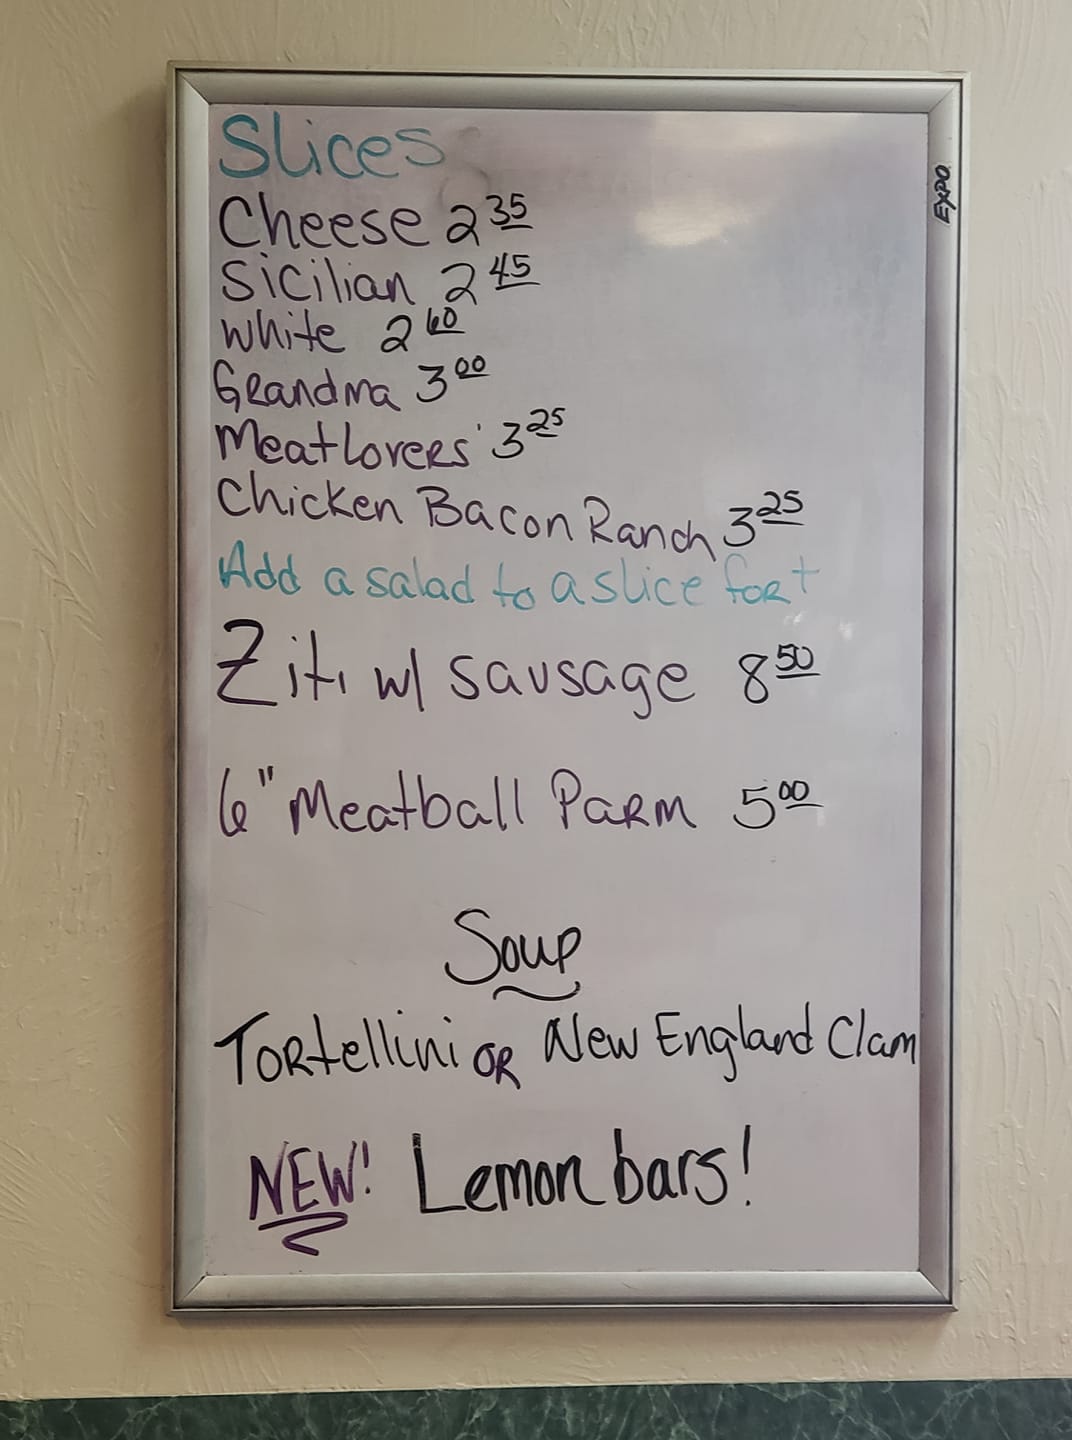 Slices
Cheese 2 35
Sicilian 2 45
White 2 60
Grandma 3 00
Meatlovers' 3 25
Chicken Bacon Ranch 3 25
Add a salad to a slice for +
Ziti w/ sausage 8 50
6" Meatball Parm 5 00
Soup
Tortellini or New England Clam
NEW! Lemon bars!
EXPO